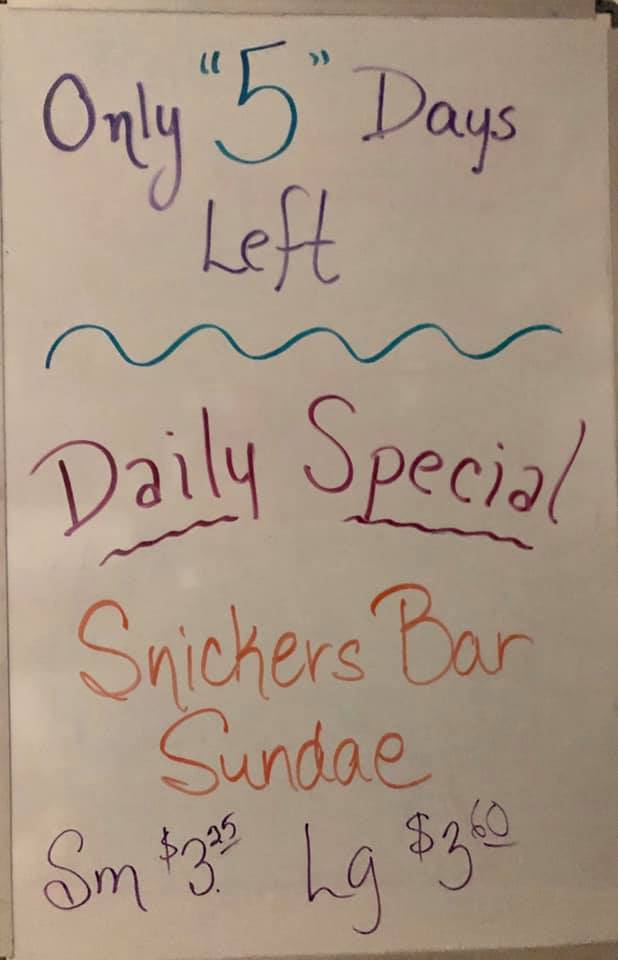 Only "5" Days
Left
Daily Special
Snickers Bar
Sundae
Sm $3.25 Lg $3 60